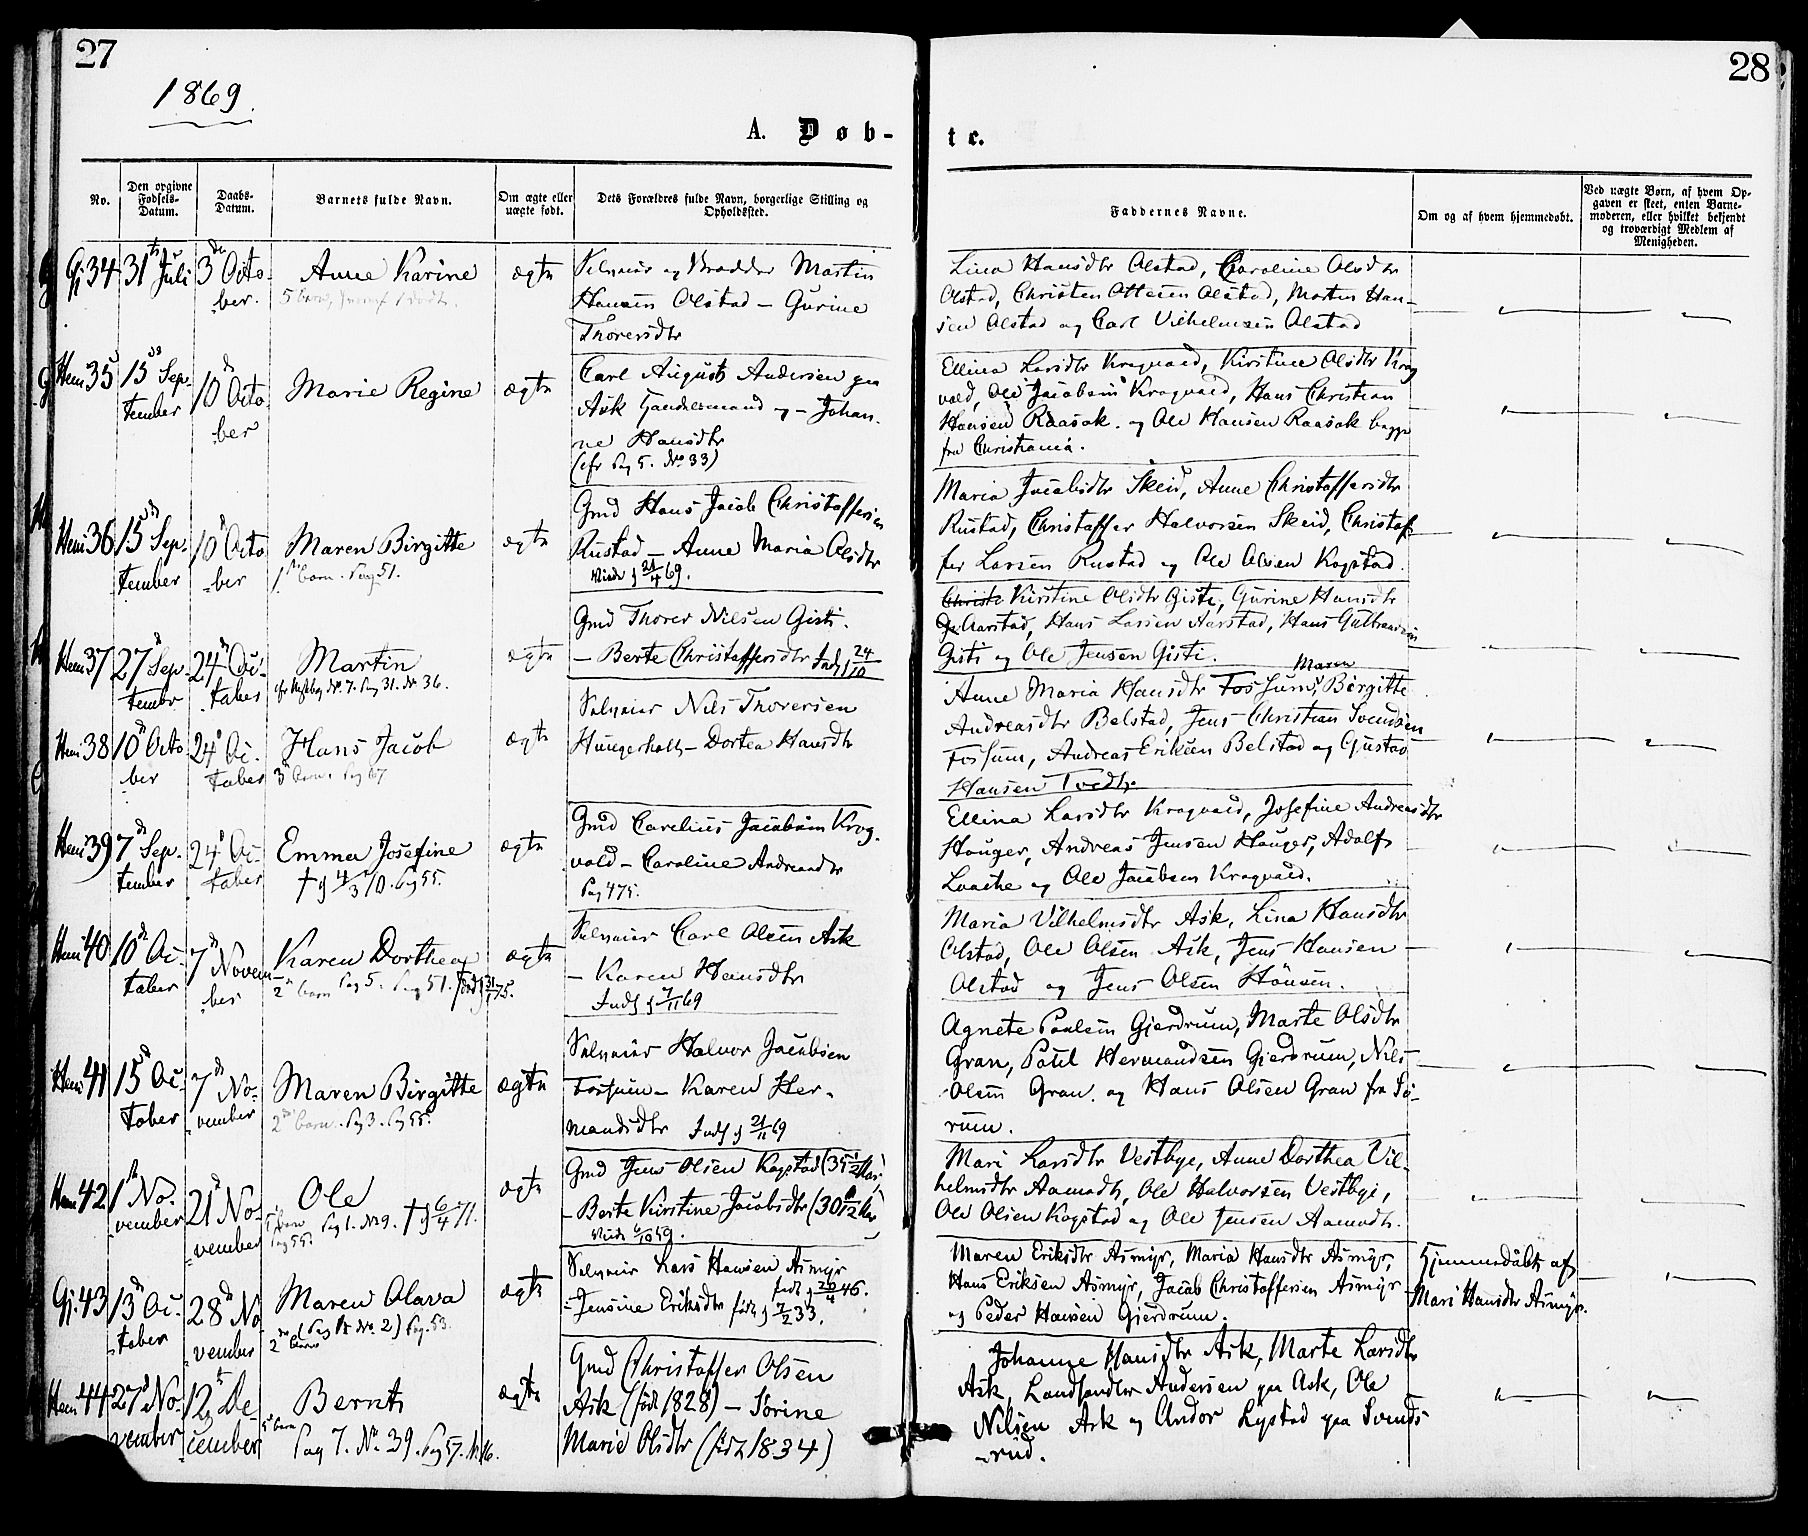 27
28
1869.
A. Døb-
te.
No.
Den opgivne Fødsels-Datum.
Daabs-Datum.
Barnets fulde Navn.
Om ægte eller uægte født.
Dets Forældres fulde Navn, borgerlige Stilling og Opholdssted.
Faddernes Navne.
Om og af hvem hjemmedøbt.
Ved uægte Børn, af hvem Opgaven er skeet, enten Barnemoderen, eller hvilket bekjendt og troværdigt Medlem af Menigheden.
Gj 34 31te Juli 3de Octo-
ber.
Anne Karine
ægte
Selveier og Martin
Hansen Olstad – Gurine
Thorersdtr
Lina Hansdtr Olstad, Caroline Olsdtr
Olstad, Christen Ottesen Olstad, Morten Han-
sen Olstad og Carl Vilhelmsen Olstad
Hem 35 15de Sep-
tember
10d Octo
ber
Marie Regine
ægte
Carl August Andersen paa
Ask Handelsmand og – Johan-
ne Hansdtr
(cfr Pag 5. No 33)
Ellina Larsdtr Kragvald, Kirstine Olsdtr Krog
vold, Ole Jacobsen Kragvald, Hans Christian
Hansen Raasok. og Ole Hansen Raasok begge
fra Christiania.
Hem 36 15de Sep-
tember
10d Octo
ber
Maren Birgitte
1ste barn. Pag 51.
ægte
Gmd Hans Jacob Christoffersen
Rustad – Anne Maria Olsdtr
Viede d 21/4 69.
Maria Jacobsdtr Skeid, Anne Christoffersdtr
Rustad, Christoffer Halvorsen Skeid, Christof-
fer Larsen Rustad og Ole Olsen Kogstad.
Hem 37 27d Sep-
tembr
24d Oc-
tober
Martin
No. 7. Pag 31. No 36.
ægte
Gmd Thorer Nilsen Gisti.
– Berte Christoffersdtr Inds d 24/10
Kirstine Olsdtr Gisti, Gurine Hansdtr
Aarstad, Hans Larsen Aarstad, Hans Gulbrandsen
Gisti og Ole Jensen Gisti.
Hem 38 10d Octo
ber
24d Oc-
tober
Hans Jacob
3d Barn. Pag 67
ægte
Selveier Nils Thoresen
Hungerholt – Dortea Hansdtr
Maren
Anne Maria Hansdtr Fossum, Birgitte
Andreasdtr Belstad, Jens Christian Svendsen
Fossum, Andreas Eriksen Belstad og Gustav
Hansen Tvedtr
Hem 39 7d Sep-
tember
24d Oc-
tober
Emma Josefine
† d 4/3 70. Pag 55.
ægte
Gmd Carelius Jacobsen Krog-
vold – Caroline Andreasdtr
Pag 475.
Ellina Larsdtr Kragvald, Josefine Andreasdtr
Hauger, Andreas Jensen Hauger, Adolf
og Ole Jacobsen Kragvald.
Hem 40 10de Oc-
tober
7d Novem-
ber
Karen Dorthea
2d barn Pag 5. Pag 51.
ægte
Selveier Carl Olsen Ask
– Karen Hansdtr
Inds d 7/11 69
Maria Vilhelmsdtr Ask, Lina Hansdtr
Olstad, Ole Olsen Ask, Jens Hansen
Olstad og Jens Olsen Hønsen.
Hem 41 15d Oc-
tober
7de No-
vember
Maren Birgitte
2d barn. Pag 3. Pag 55.
ægte
Selveier Halvor Jacobsen
Fossum – Karen Her-
mandsdtr Inds d 21/11 69
Agnete Paulsen Gjerdrum, Marte Olsdtr
Gran, Poul Hermandsen Gjerdrum, Nils
Olsen Gran. og Hans Olsen Gran fra Sø-
rum.
Hem 42 1ste No-
vember
21d No-
vember
Ole
1ste barn Pag 1. No 9. † d 6/4 71.
Pag 55.
ægte
Gmd Jens Olsen Kogstad (35 1/2 Aar)
– Berte Kirstine Jacobsdtr (30 Aar)
Viede 6/10 59.
Mari Larsdtr Vestbye, Anne Dorthea Vil-
helmsdtr Aamodt, Ole Halvorsen Vestbye,
Ole Olsen Kogstad og Ole Jensen Aamodt.
Gj. 43 13d Oc-
tober
28d No
vember
Maren Olava
2det barn (Pag No. 2) Pag. 53.
ægte
Selveier Lars Hansen Asmyr
født d 20/4 46.
– Jensine Eriksdtr født d 7/2 33.
Maren Eriksdtr Asmyr, Maria Hansdtr Asmyr,
Hans Eriksen Asmyr, Jacob Christoffersen Asmyr
og Peder Hansen Gjerdrum.
Hjemmedøbt af
Mari Hansdtr Asmyr.
Hem 44 27d No-
vember
12te De
cember
Bernt
5d barn
Pag 7. No. 39. Pag 57. N. 16.
ægte
Gmd Christoffer Olsen
Ask (født 1828) – Sørine
Marie Olsdtr (født 1834)
Johanne Hansdtr Ask, Marte Larsdtr
Ask, Landhandler Andersen paa Ask, Ole
Nilsen Ask og Andor Lystad paa Svends-
rud.